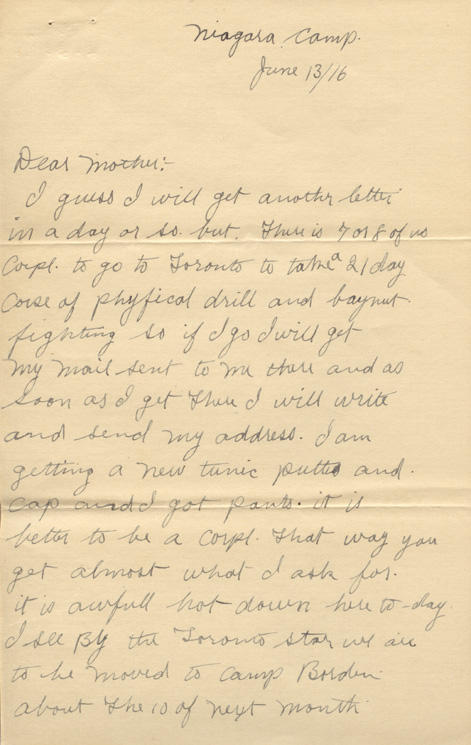 Niagara Camp.
June 13/16
Dear Mother:-
I guess I will get another letter
in a day or so. but. There is 7 or 8 of us
Corpl. to go to Toronto to take a 21 day
Corse of phyfical drill and baynut.
fighting so if I go I will get
my mail sent to me there and as
soon as I get there I will write
and send my address. I am
getting a new tunic putts and.
cap and I got pants. it is
better to be a Corpl. that way you
get almost what I ask for.
it is awfull hot down here to-day.
I see By the Toronto Star we are
to be moved to Camp Borden
about the 10 of next month